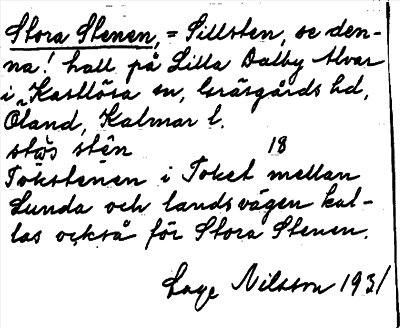 Stora Stenen, = Sillsten, se den-
na! hall på Lilla Dalby Alvar
i Kastlösa sn, Gräsgårds hd,
Öland, Kalmar l.
stọ̀s stên 18
Tokstenen i Toket mellan
Lunda och landsvägen kal-
las också för Stora Stenen.
Lage Nilsson 1931